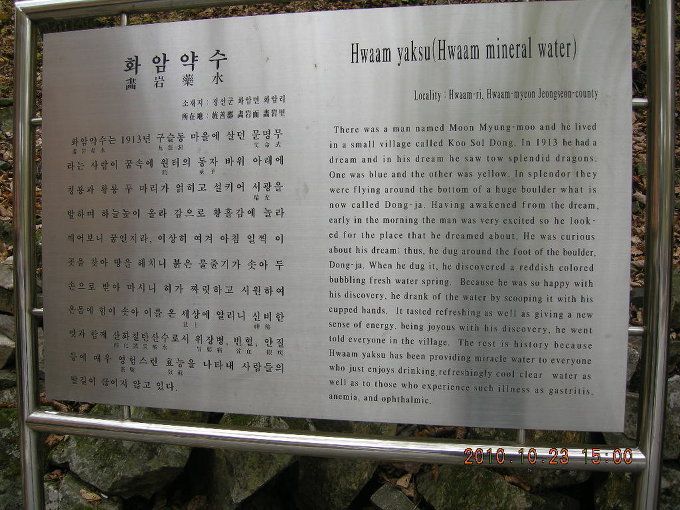 화암약수
畵岩藥水
소재지 : 정선군 화암면 화암리
所在地 : 旌善郡 畵岩面 畵岩里
화암약수는 1913년 구슬동 마을에 살던 문명무
라는 사람이 꿈속에 원터의 동자 바위 아래에
청룡과 황룡 두 마리가 얽히고 설키어 서광을
발하며 하늘높이 올라 감으로 황홀감에 놀라
깨어보니 꿈인지라, 이상히 여겨 아침 일찍 이
곳을 찾아 땅을 해치니 붉은 물줄기가 솟아 두
손으로 받아 마시니 혀가 짜릿하고 시원하여
온몸에 힘이 솟아 이를 온 세상에 알리니 신비한
맛과 함께 산화철탄산수로서 위장병, 빈혈, 안질
등에 매우 영험스런 효능을 나타내 사람들의
발길이 끊이지 않고 있다.
Hwaam yaksu(Hwaam mineral water)
Locality : Hwaam-ri, Hwaam-myeon Jeongseon-county
There was a man named Moon Myung-moo and he lived
in a small village called Koo Sol Dong. In 1913 he had a
dream and in his dream he saw tow splendid dragons.
One was blue and the other was yellow. In splendor they
were flying around the bottom of a huge boulder what is
now called Dong-ja. Having awakened from the dream,
early in the morning the man was very excited so he look-
ed for the place that he dreamed about. He was curious
about his dream: thus, he dug around the foot of the boulder,
Dong-ja. When he dug it, he discovered a reddish colored
bubbling fresh water spring. Because he was so happy with
his discovery, he drank of the water by scooping it with his
cupped hands. It tasted refreshing as well as giving a new
sense of energy, being joyous with his discovery, he went
told everyone in the village. The rest is history because
Hwaam yaksu has been providing miracle water to everyone
who just enjoys drinking refreshingly cool clear water as
well as to those who experience such illness as gastritis,
anemia, and ophthalmic.
2010.10.23 15:00